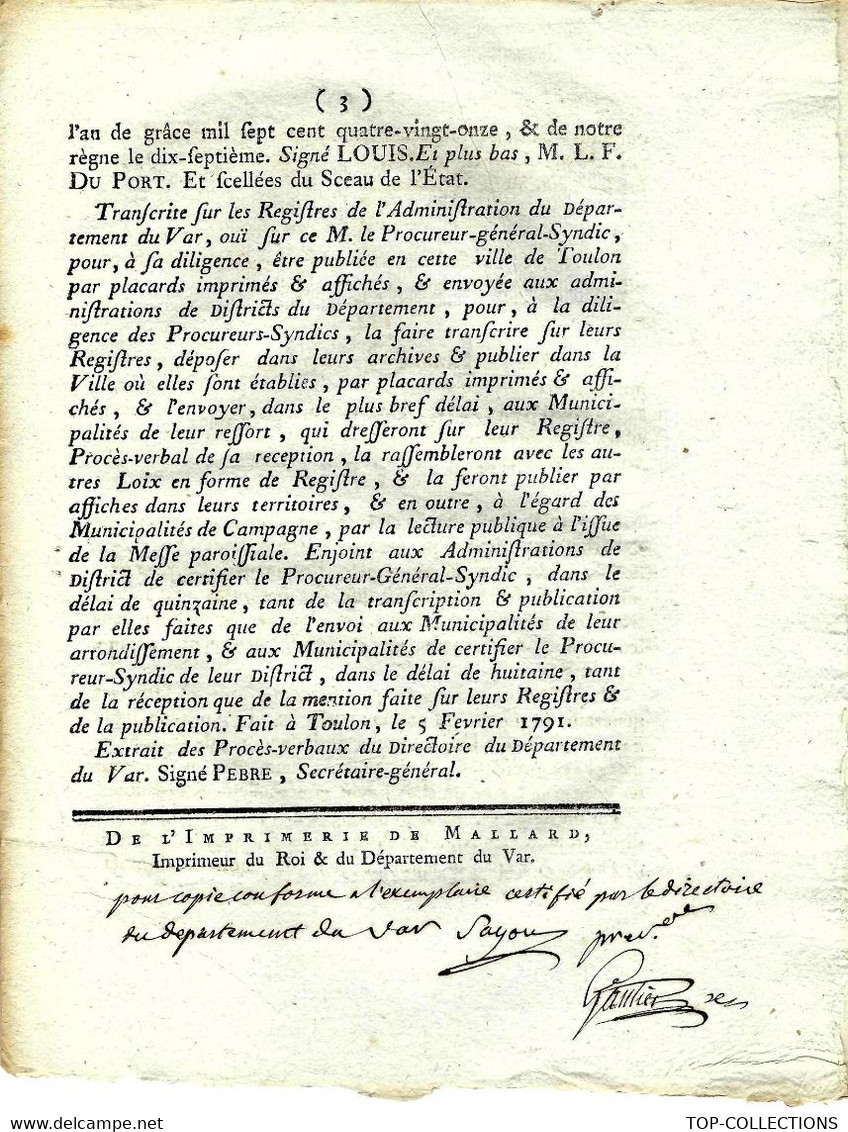 ( 3 )
l'an de grâce mil ſept cent quatre-vingt-onze , & de notre
règne le dix-ſeptième. Signé LOUIS. Et plus bas , M. L. F.
DU PORT. Et ſcellées du Sceau de l'État.
Tranſcrite ſur les Regiſtres de l'Adminiſtration du Dépar-
tement du Var, ouï ſur ce M. le Procureur-général-Syndic,
pour, à ſa diligence , être publiée en cette ville de Toulon
par placards imprimés & affichés , & envoyée aux admi-
niſtrations de Diſtricts du Département , pour , à la dili-
gence des Procureurs-Syndics , la faire tranſcrire ſur leurs
Regiſtres , dépoſer dans leurs archives & publier dans la
Ville où elles ſont établies , par placards imprimés & affi-
chés , & l'envoyer, dans le plus bref délai , aux Munici-
palités de leur reſſort , qui dreſſeront ſur leur Regiſtre,
Procès-verbal de ſa reception , la raſſembleront avec les au-
tres Loix en forme de Regiſtre , & la feront publier par
affiches dans leurs territoires , & en outre , à l'égard des
Municipalités de Campagne , par la lecture publique à l'iſſue
de la Meſſe paroiſſiale. Enjoint aux Adminiſtrations de
Diſtrict de certifier le Procureur-Général-Syndic , dans le
délai de quinzaine , tant de la tranſcription & publication
par elles faites que de l'envoi aux Municipalités de leur
arrondiſſement , & aux Municipalités de certifier le Procu-
reur-Syndic de leur Diſtrict , dans le délai de huitaine , tant
de la réception que de la mention faite ſur leurs Regiſtres &
de la publication. Fait à Toulon, le 5 Fevrier 1791.
Extrait des Procès-verbaux du Directoire du Département
du Var. Signé PEBRE , Secrétaire-général.
DE L'IMPRIMERIE DE MALLARD,
Imprimeur du Roi & du Département du Var.
pour copie conforme a l'exemplaire certifié par le directoire
du departement du var
Gautier
TOP-COLLECTIONS